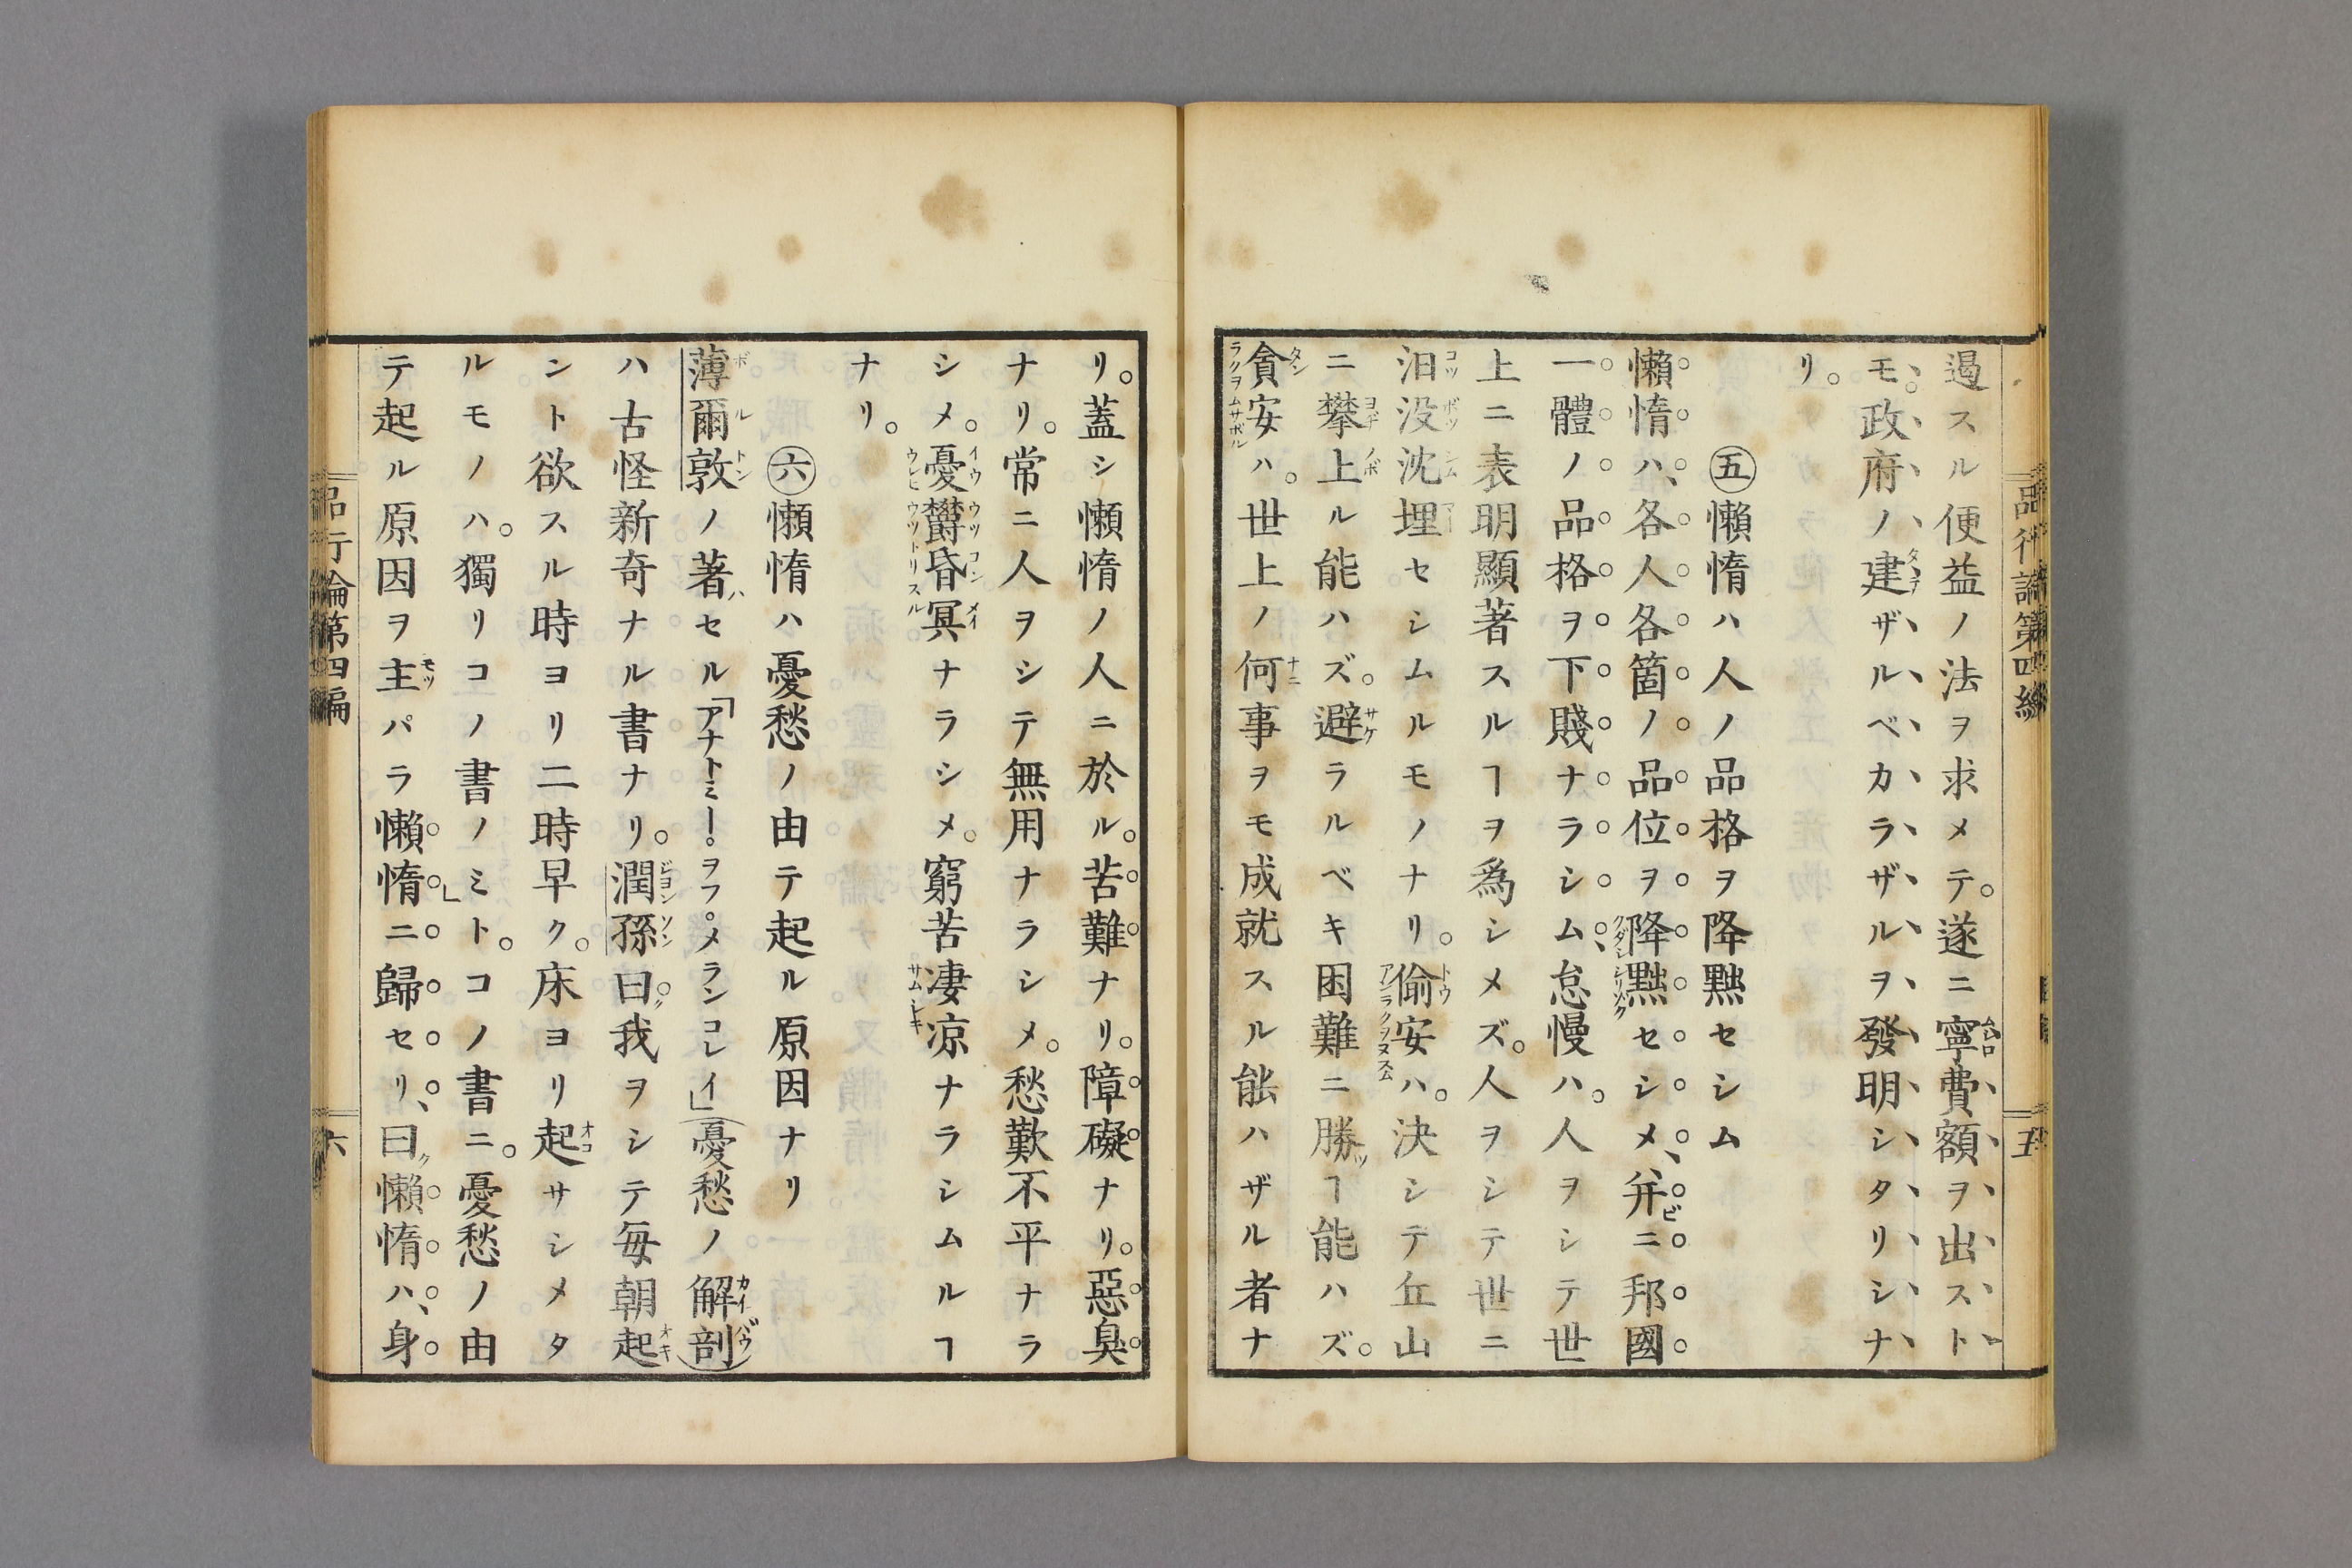 過スル便益ノ法ヲ求メテ。遂ニ寧費額ヲ出スト
モ。政府ノ建ザルベカラザルヲ發明シタリシナ
リ。
㊄懶惰ハ人ノ品格ヲ降黜セシム
懶惰ハ、各人各箇ノ品位ヲ降黜セシメ、弁ニ邦國
一體ノ品格ヲ下賤ナラシム、怠慢ハ。人ヲシテ世
上ニ表明顯著スルヿヲ爲シメズ。人ヲシテ世ニ
汨没沈埋セシムルモノナリ。偷安ハ。決シテ丘山
ニ攀上ル能ハズ。避ラルベキ困難ニ勝ツヿ能ハズ。
貪安ハ。世上ノ何事ヲモ成就スル能ハザル者ナ
品行論第四編
五
リ。蓋シ懶惰ノ人ニ於ル。苦難ナリ。障礙ナリ。惡臭
ナリ。常ニ人ヲシテ無用ナラシメ。愁歎不平ナラ
シメ。憂欝昏冥ナラシメ。窮苦凄凉ナラシムルヿ
ナリ。
㊅懶惰ハ憂愁ノ由テ起ル原因ナリ
薄爾敦ノ著ハセル「アナトミー。ヲフ。メランコレイ」(憂愁ノ解剖)
ハ古怪新奇ナル書ナリ。潤孫曰ク。我ヲシテ毎朝起
ント欲スル時ヨリ二時早ク。床ヨリ起サシメタ
ルモノハ。獨リコノ書ノミ」ト。コノ書ニ。憂愁ノ由
テ起ル原因ヲ主パラ懶惰ニ歸セリ、曰ク懶惰ハ、身
品行論第四編
六